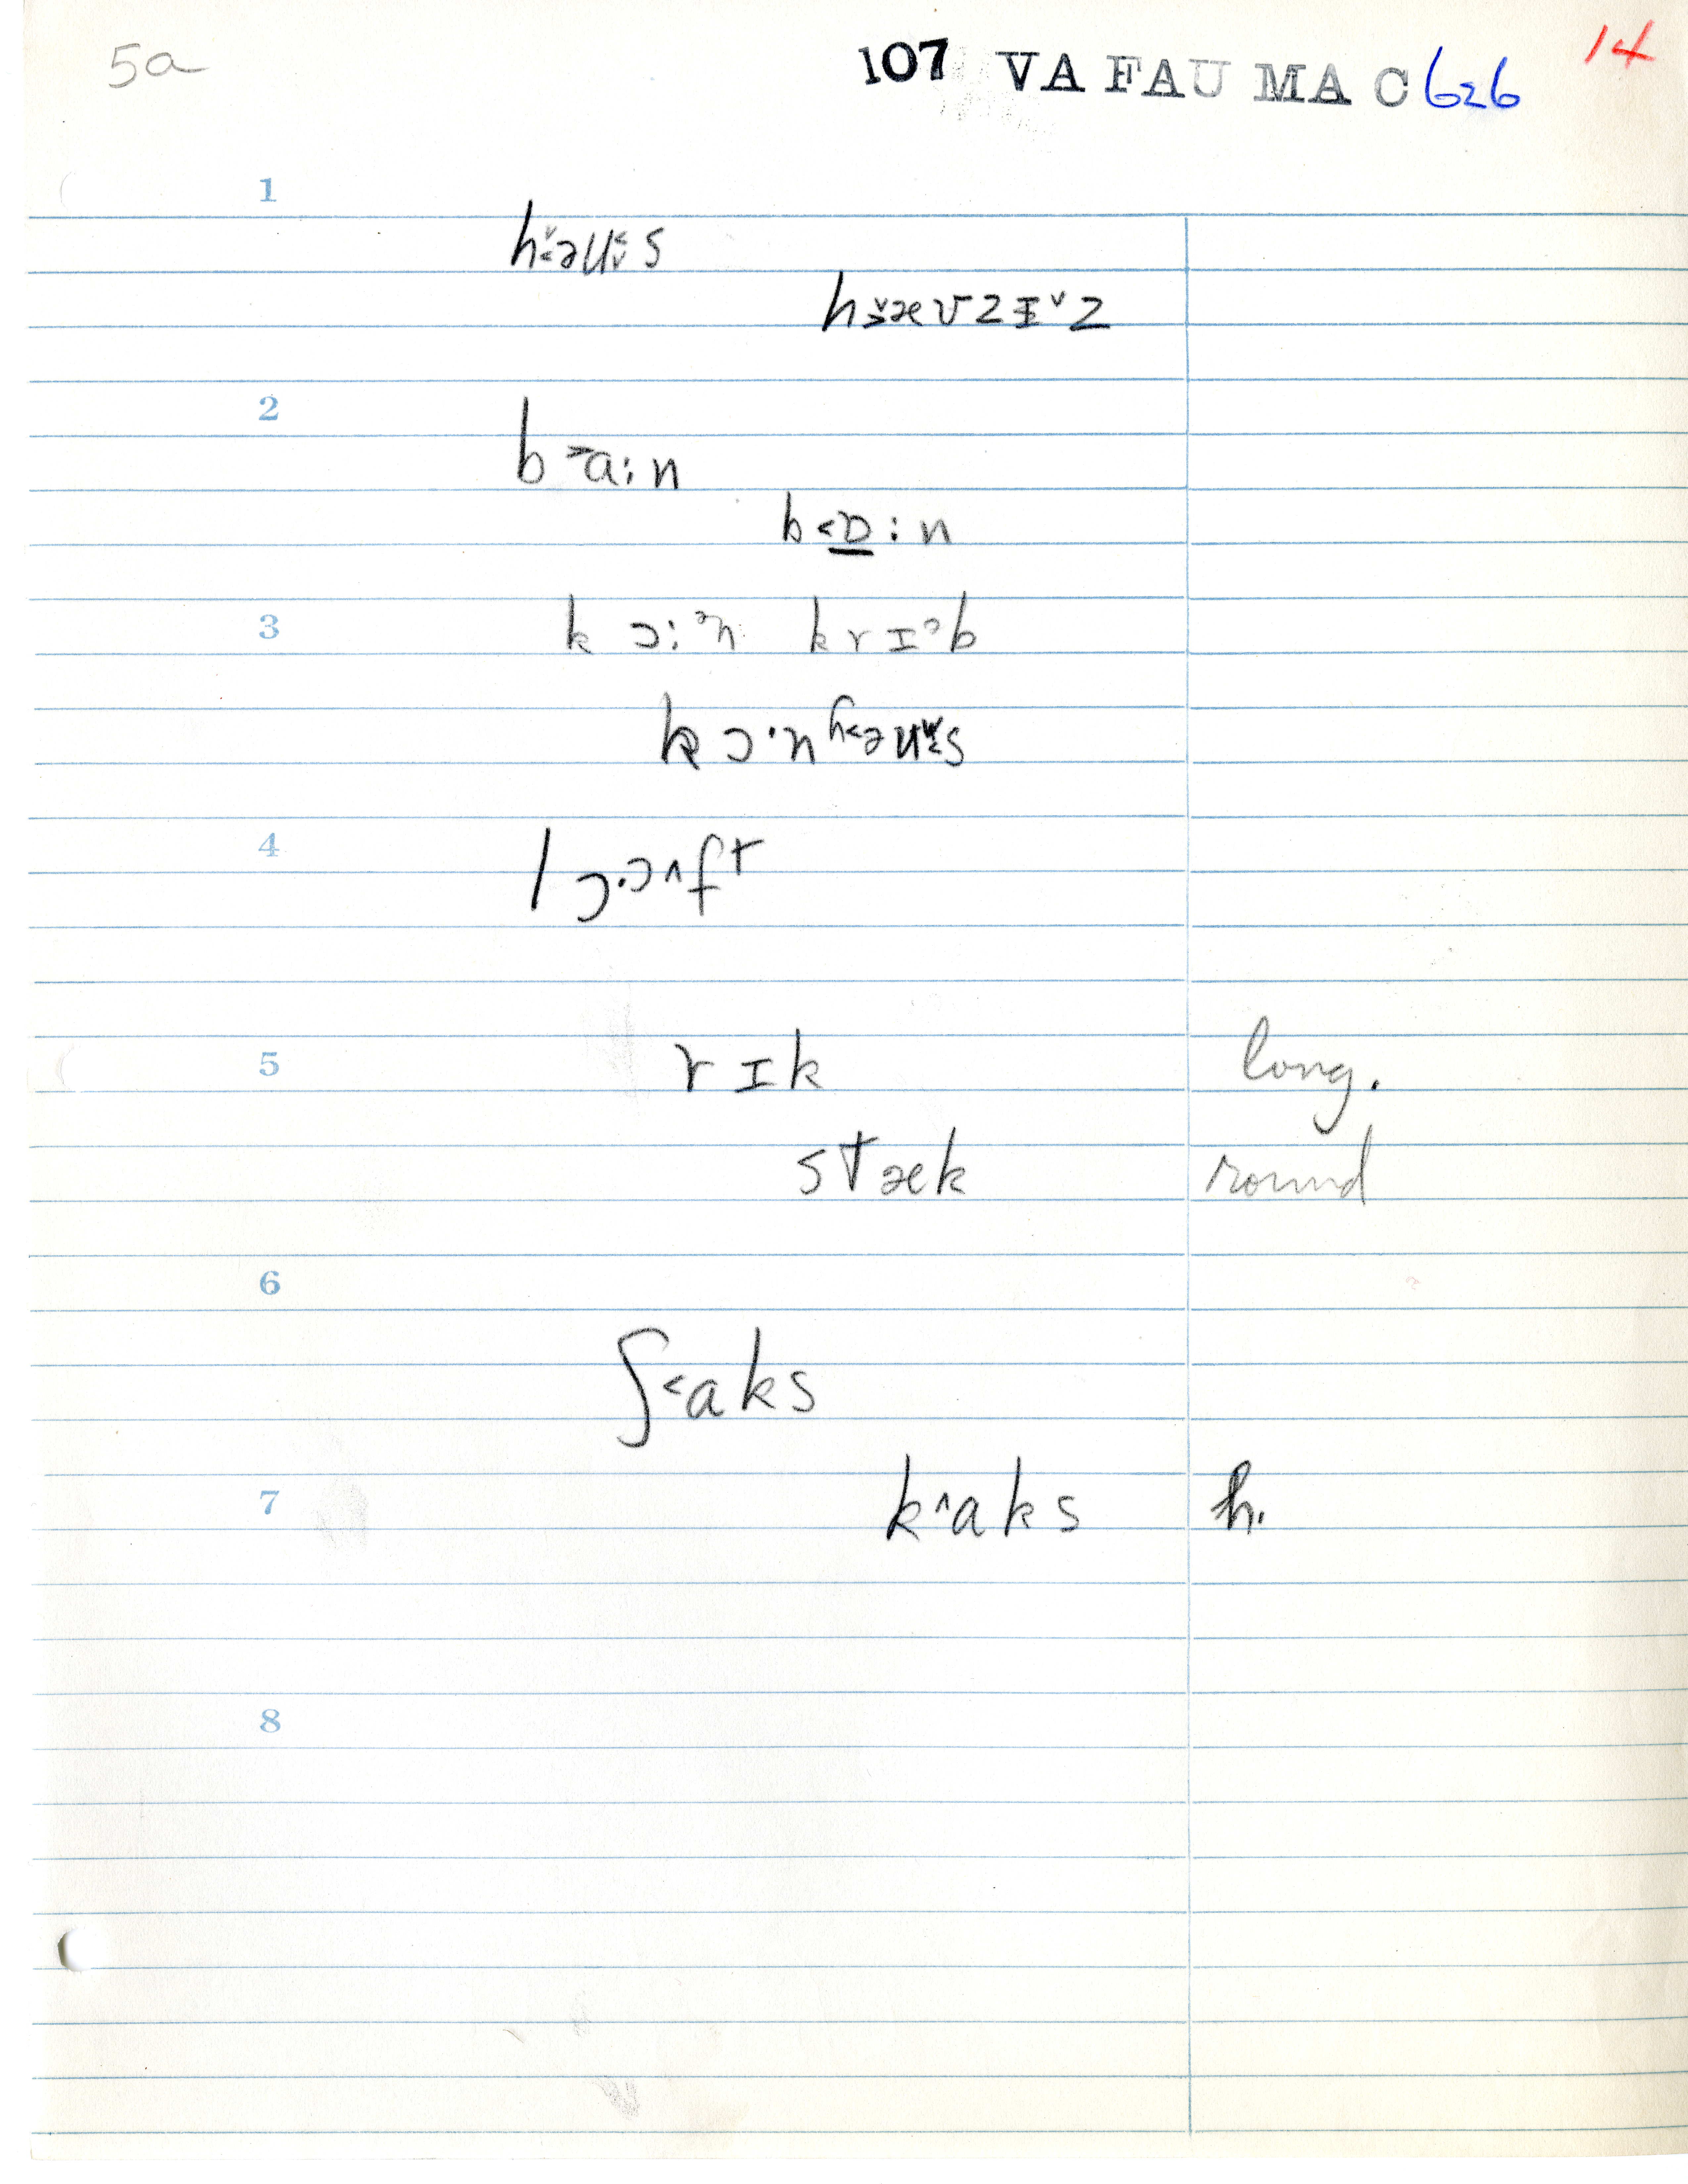 5a
107 VA FAU MA C 626
14
1
h˂̌əu˂̬s
h˃̌æʊzɪˇz
2
b˃a:n
b˂ɒ̲:n
3
k ɔ:ᵊn krɪᵊb
kɔ·nh˂əu˂̌s
4
lɔ·ɔ^ft
5 rɪk long.
stæk round
6
ʃ˂aks
7 k^aks h.
8